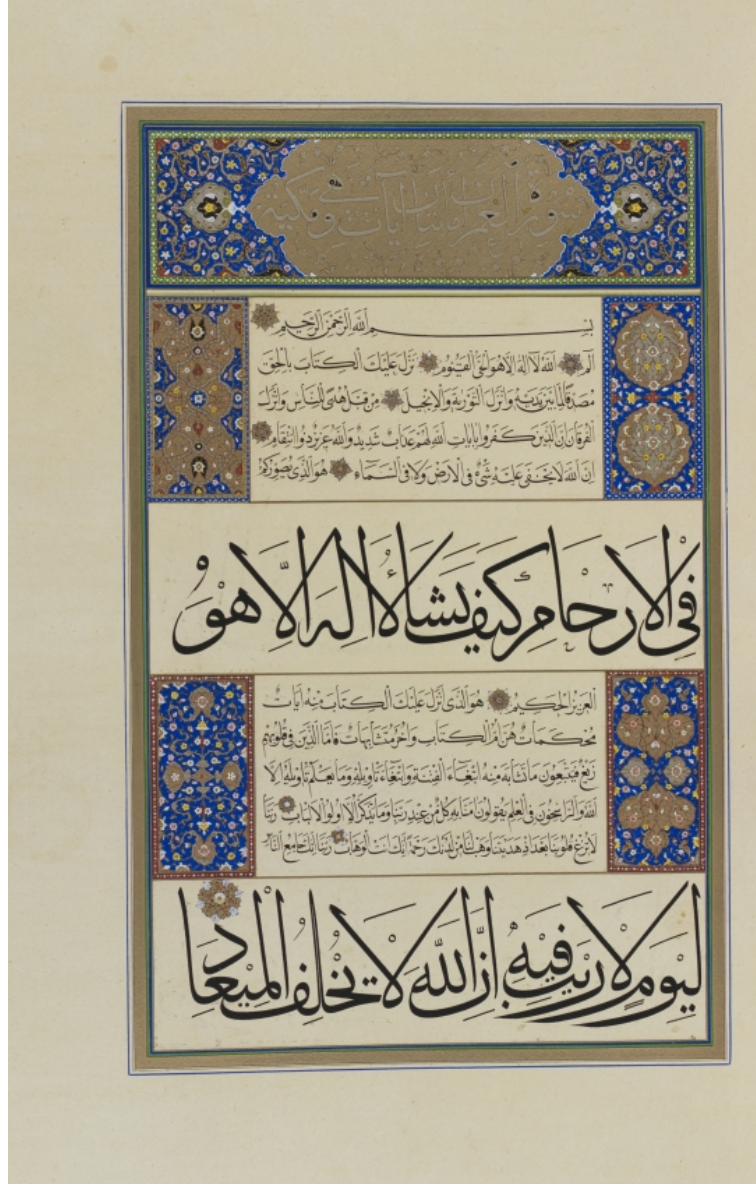 سورة آل عمران مائتان آيات وهي مكية
بسم الله الرحمن الرحيم
الم الله لا اله الا هو الحي القيوم نزل عليك الكتاب بالحق
مصدقا لما بين يديه وانزل التورية والانجيل من قبل هدى للناس وانزل
الفرقان ان الذين كفروا بايات الله لهم عذاب شديد والله عزيز ذو انتقام
ان الله لا يخفى عليه شئ في الارض ولا في السماء هو الذي يصوركم
في الارحام كيف يشاء لا اله الا هو
العزيز الحكيم هو الذي انزل عليك الكتاب منه ايات
محكمات هن ام الكتاب واخر متشابهات فاما الذين في قلوبهم
زيغ فيتبعون ما تشابه منه ابتغاء الفتنة وابتغاء تاويله وما يعلم تاويله الا
الله والراسخون في العلم يقولون امنا به كل من عند ربنا وما يذكر الا اولو الالباب ربنا
لا تزغ قلوبنا بعد اذ هديتنا وهب لنا من لدنك رحمة انك انت الوهاب ربنا انك جامع الناس
ليوم لا ريب فيه ان الله لا يخلف الميعاد